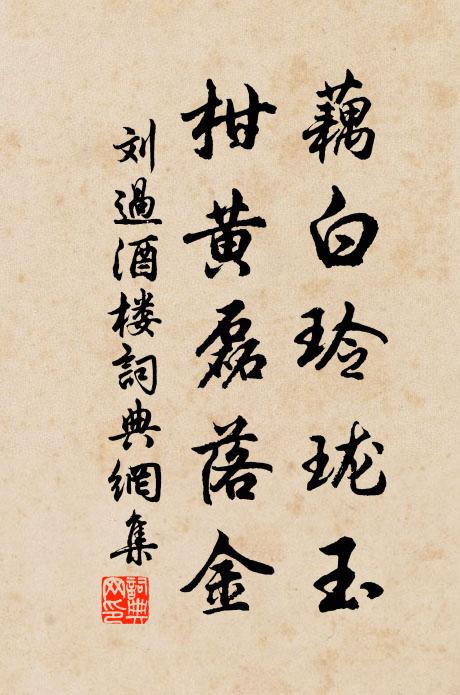 藕白玲珑玉
柑黄磊落金
刘過酒楼詞典網集
詞典網印